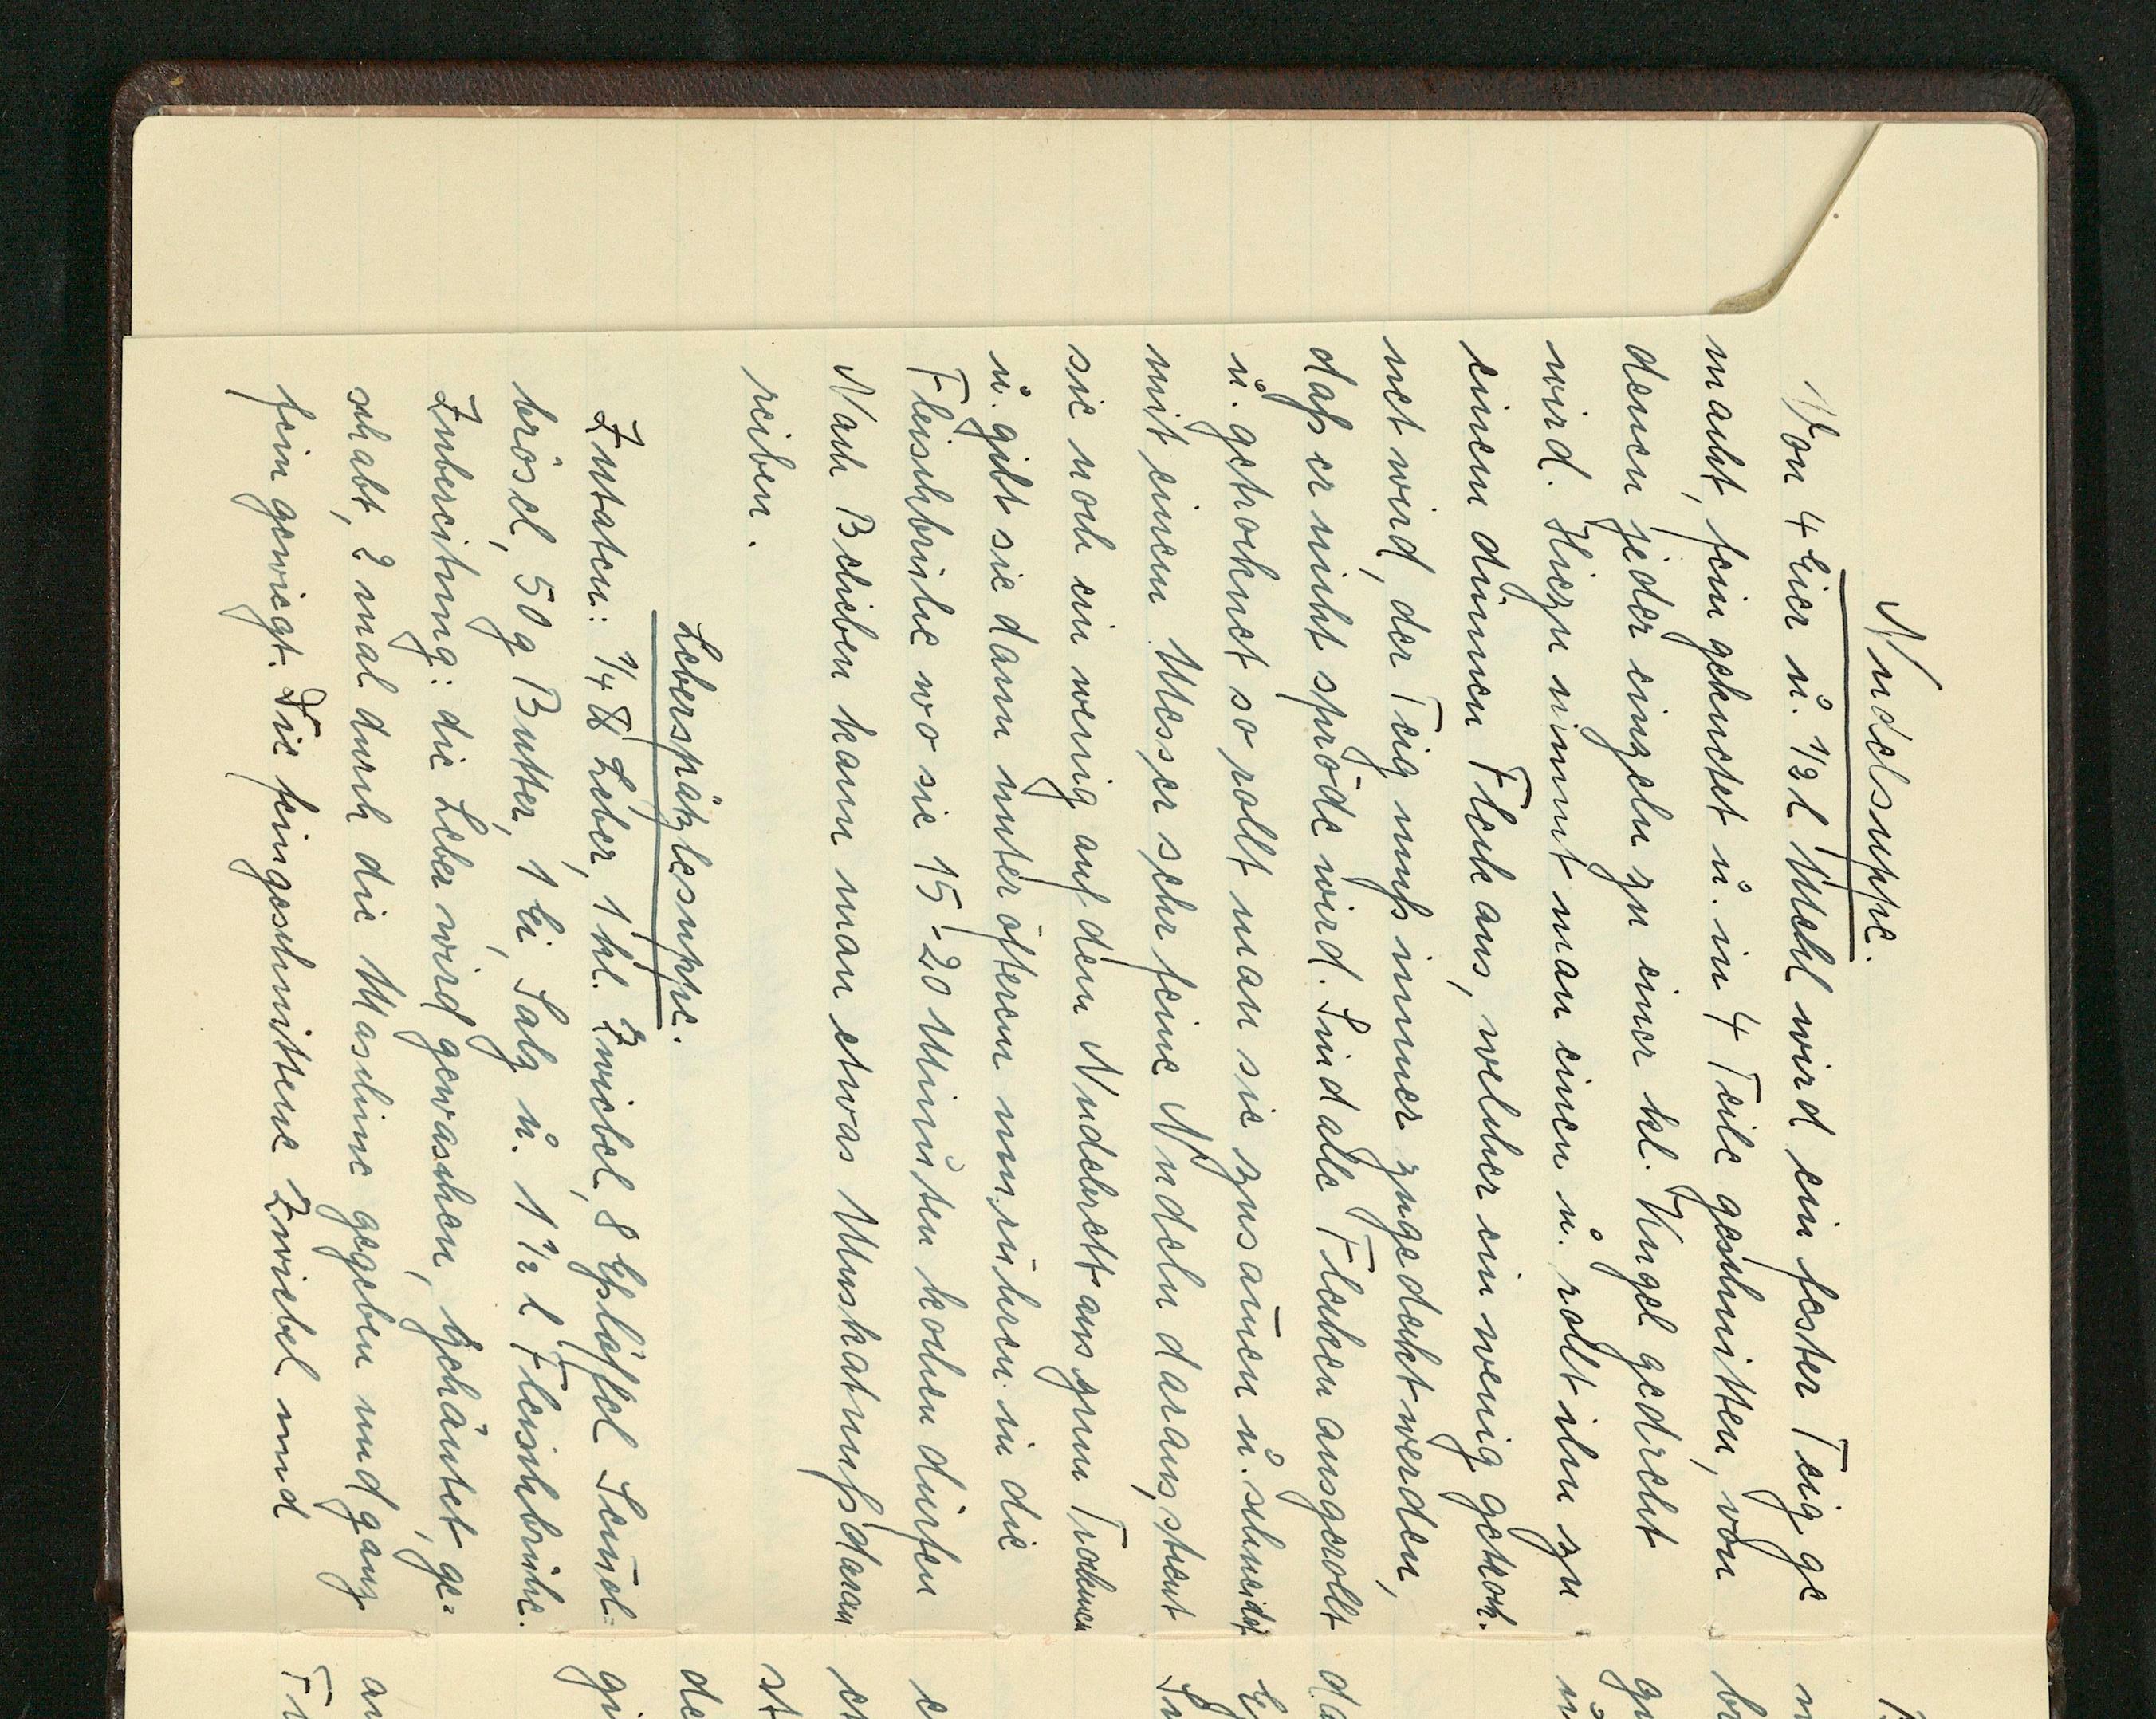 Nudelsuppe.
Von 4 Eier u. 1/2 l Mehl wird ein fester Teig ge
macht, fein geknetet u. in 4 Teile geschnitten, von
denen jeder einzeln zu einer kl. Kugel gedreht
wird. Hiezu nimmt man einen u. rollt ihn zu
einem dünnen Fleck aus, welcher ein wenig getrock.
net wird, der Teig muß immer zugedeckt werden,
daß er nicht spröde wird. Sind alle Flecken ausgerollt
u. getrocknet so rollt man sie zusam̅en u. schneidet
mit einem Messer sehr feine Nudeln daraus, streut
sie noch ein wenig auf dem Nudelrett aus zum Trocknen
u. gibt sie dann unter öfterem umrühren in die
Fleischbrühe wo sie 15-20 Minuten kochen dürfen
Nach Belieben kann man etwas Muskatnuß daran
reiben.
Leberspätzlesuppe.
Zutaten: 1/4 ℔ Leber, 1 kl. Zwiebel, 8 Eßlöffel Sem̅el=
brösel, 50 g Butter, 1 Ei, Salz u. 1 1/2 l Fleischbrühe.
Zubereitung: die Leber wird gewaschen, gehäutet, ge=
schabt, 2 mal durch die Maschine gegeben und ganz
fein gewiegt. Die feingeschnittene Zwiebel und